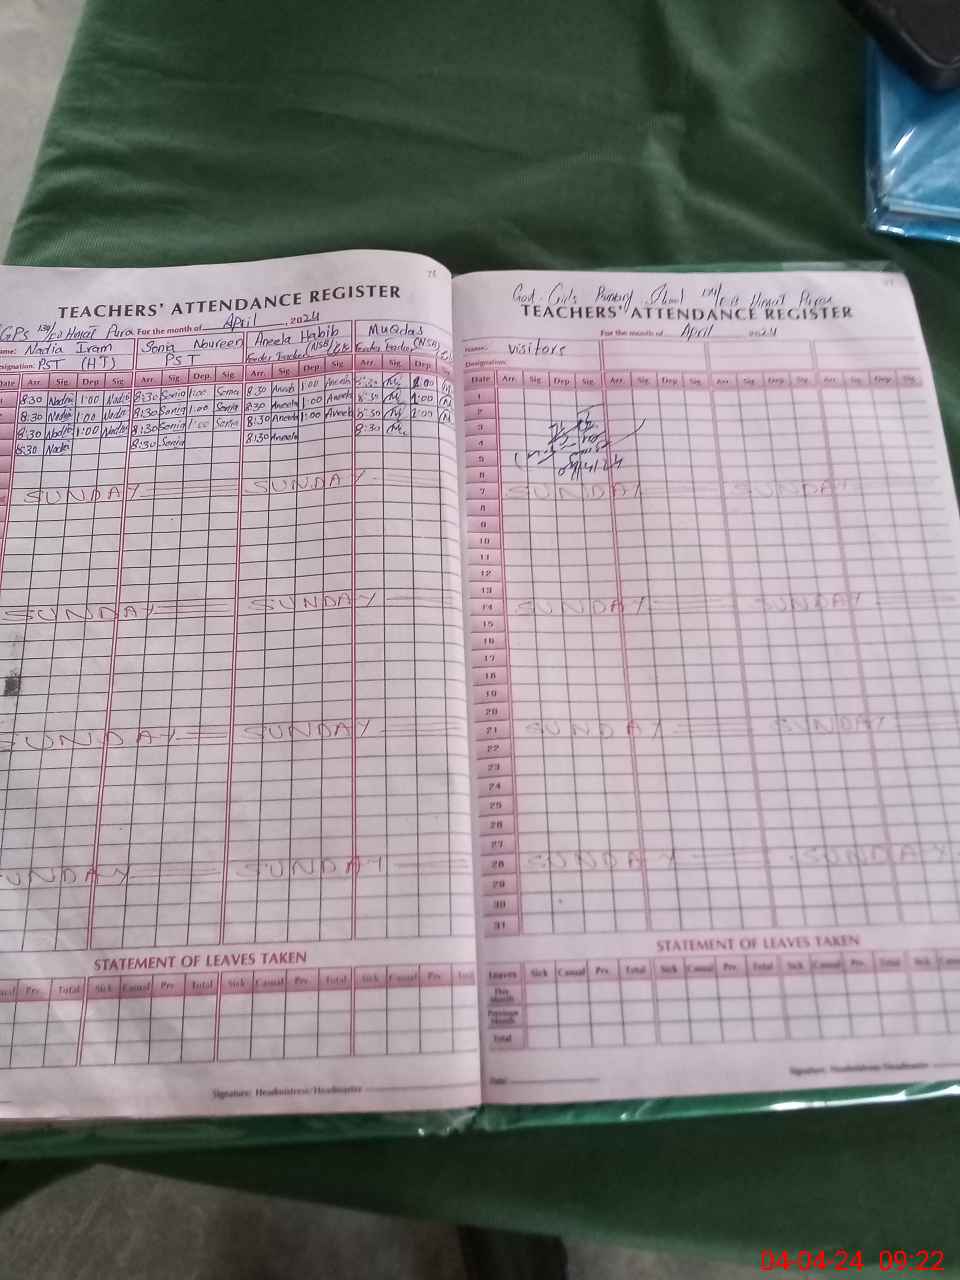 TEACHERS' ATTENDANCE REGISTER
GPS Himat Pura For the month of April, 2024
Name: Nadia Iram Sonia Noureen Aneela Habib MuQdas
Designation: PST (HT) PST Feeder Teacher (NSB) Feeder Teacher (NSB)
Date Arr. Sig. Dep. Sig. Arr. Sig. Dep. Sig. Arr. Sig. Dep. Sig. Arr. Sig. Dep.
8:30 Nadia 1:00 Nadia 8:30 Sonia 1:00 Sonia 8:30 Aneela 1:00 Aneela 8:30 1:00
8:30 Nadia 1:00 Nadia 8:30 Sonia 1:00 Sonia 8:30 Aneela 1:00 Aneela 8:30 1:00
8:30 Nadia 1:00 Nadia 8:30 Sonia 1:00 Sonia 8:30 Aneela 1:00 Aneela 8:30 1:00
8:30 Nadia 8:30 Sonia 8:30 Aneela 8:30
SUNDAY SUNDAY
SUNDAY SUNDAY
SUNDAY SUNDAY
SUNDAY SUNDAY
STATEMENT OF LEAVES TAKEN
Casual Prv. Total Sick Casual Prv. Total Sick Casual Prv. Total Sick Casual Prv. Total
Signature: Headmistress/Headmaster
Govt. Girls Primary School Himat Pura
TEACHERS' ATTENDANCE REGISTER
For the month of April 2024
Name: visitors
Designation:
Date Arr. Sig. Dep. Sig. Arr. Sig. Dep. Sig. Arr. Sig. Dep. Sig. Arr. Sig. Dep. Sig.
1
2
3
4
5
04/4/24
6
7 SUNDAY SUNDAY
8
9
10
11
12
13
14 SUNDAY SUNDAY
15
16
17
18
19
20
21 SUNDAY SUNDAY
22
23
24
25
26
27
28 SUNDAY SUNDAY
29
30
31
STATEMENT OF LEAVES TAKEN
Leaves Sick Casual Prv. Total Sick Casual Prv. Total Sick Casual Prv. Total Sick Casual
This Month
Previous Month
Total
Date
Signature: Headmistress/Headmaster
04-04-24 09:22